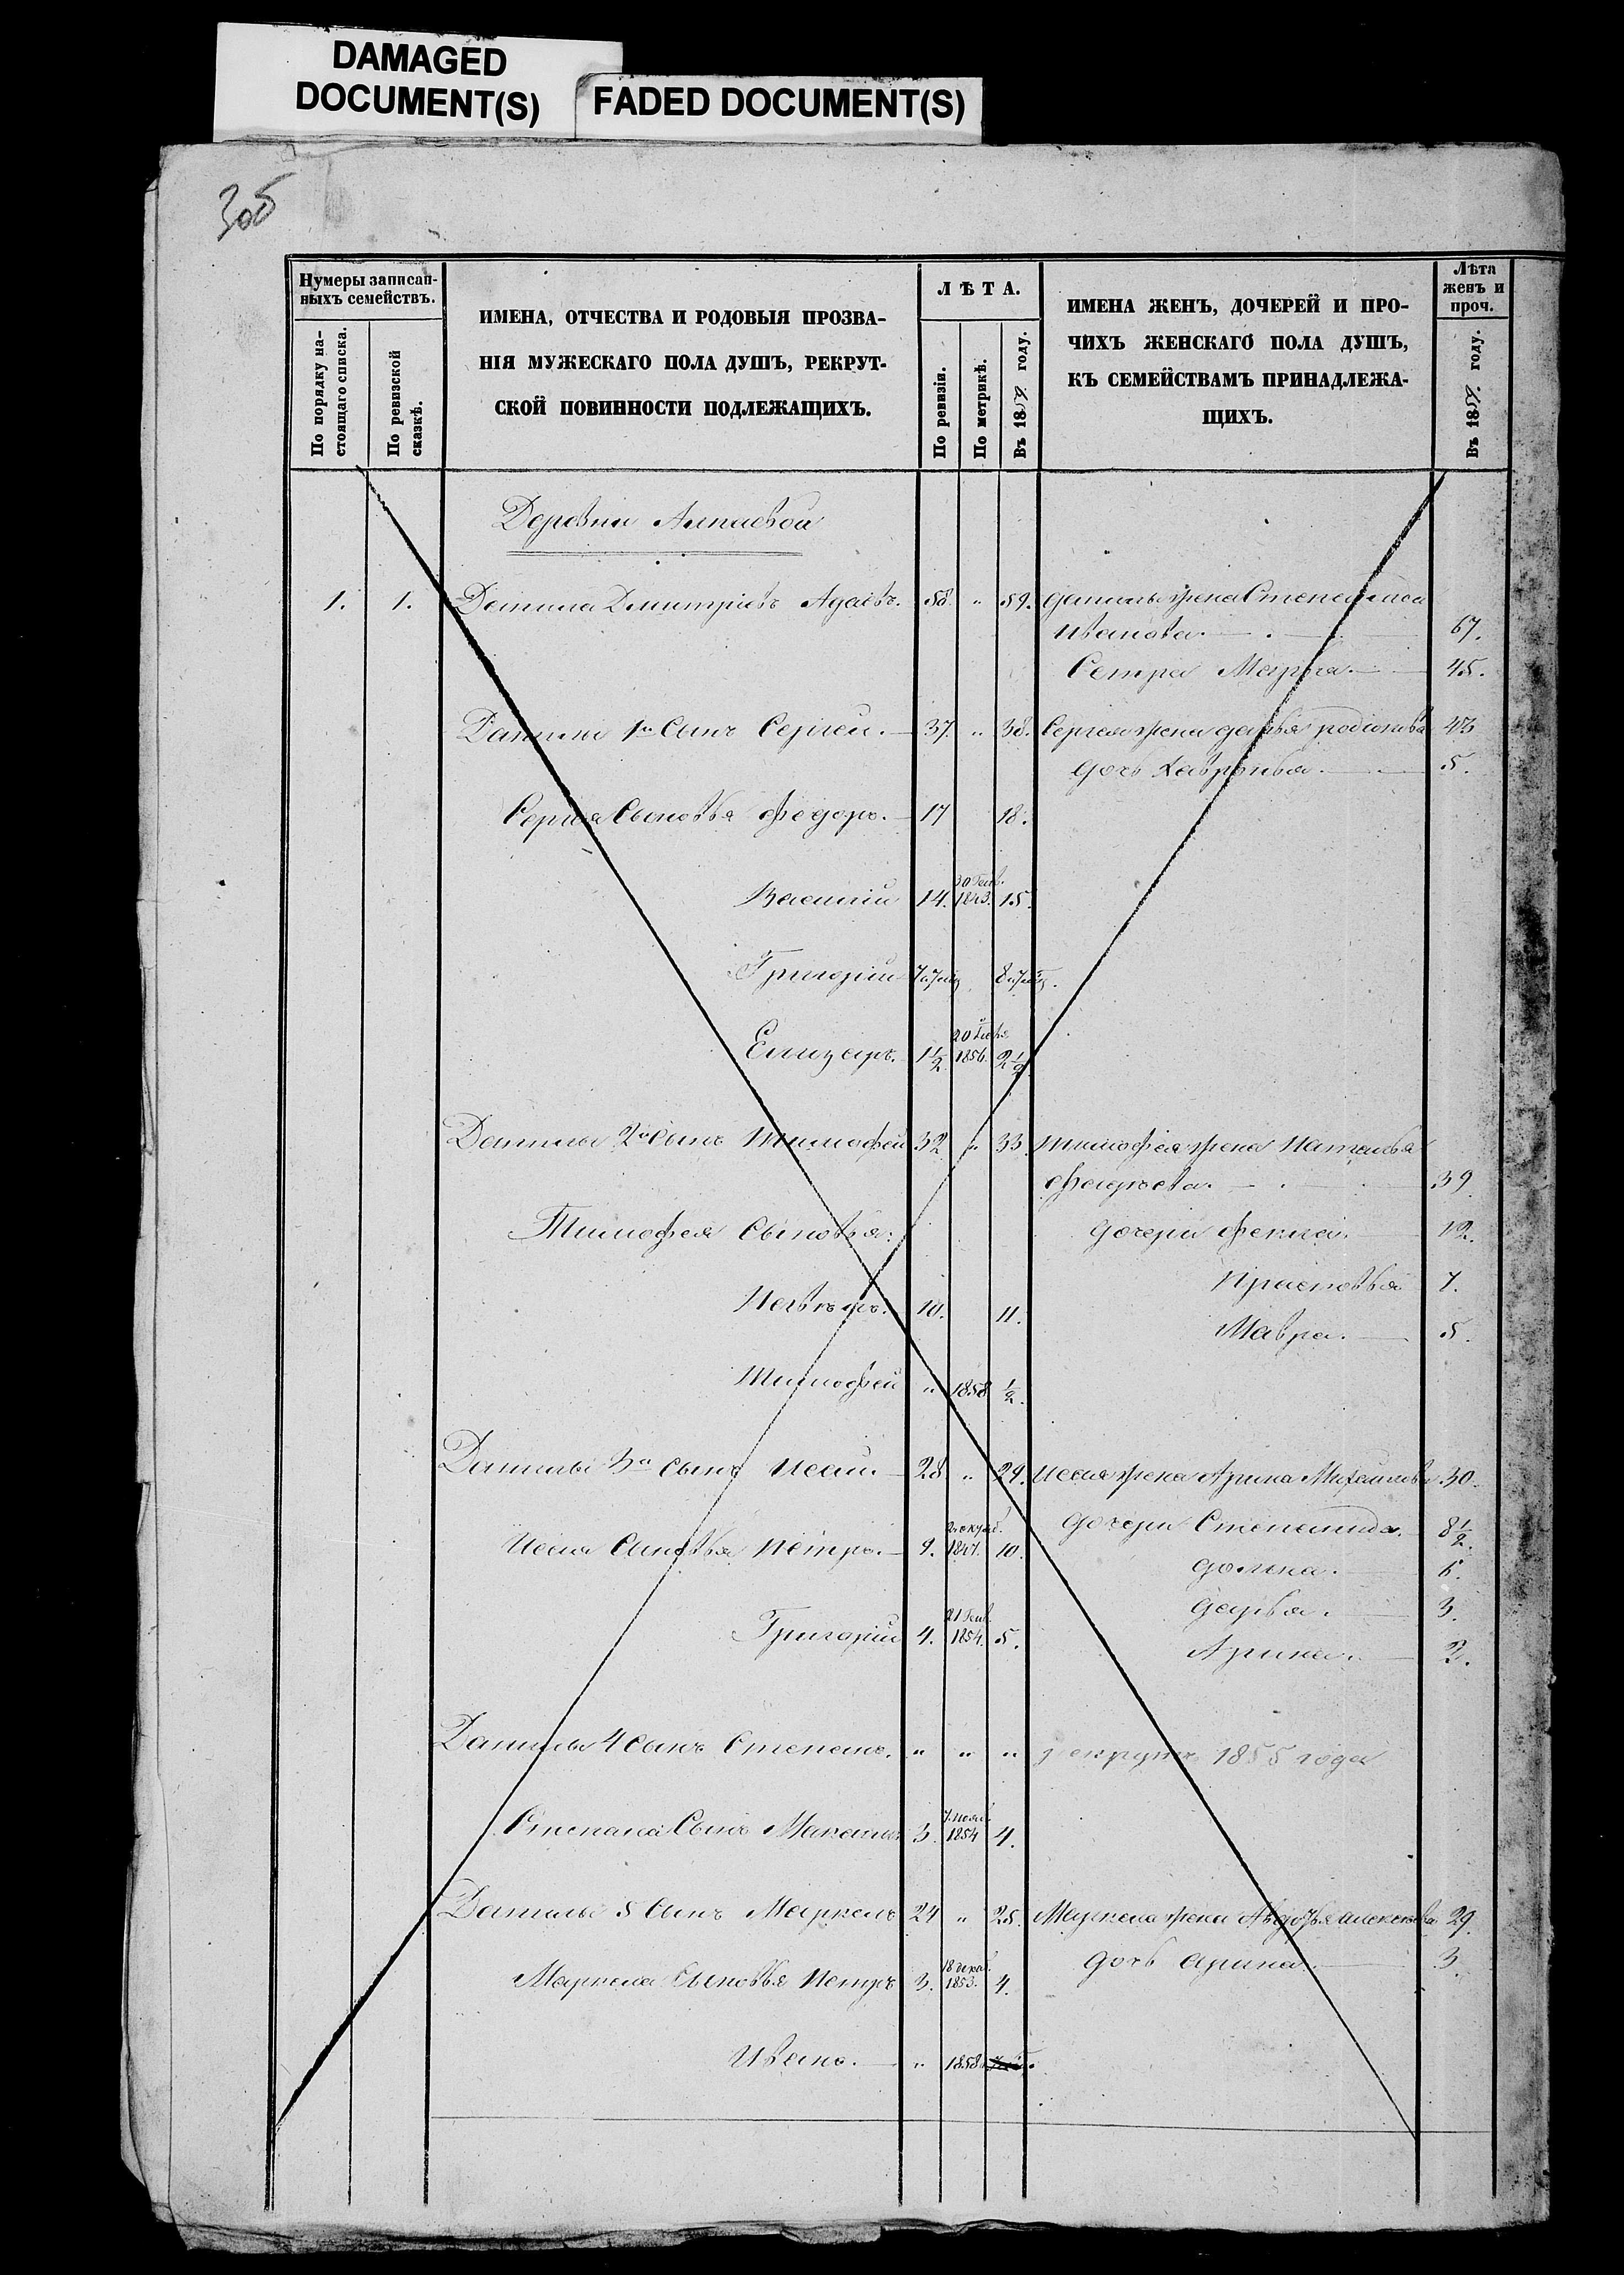 DAMAGED
DOCUMENT(S)
FADED DOCUMENT(S)
305
Нумеры записан-
ныхъ семействъ.
По порядку на-
стоящаго списка.
По ревизской
сказкѣ.
ИМЕНА, ОТЧЕСТВА И РОДОВЫЯ ПРОЗВА-
НІЯ МУЖЕСКАГО ПОЛА ДУШЪ, РЕКРУТ-
СКОЙ ПОВИННОСТИ ПОДЛЕЖАЩИХЪ.
ЛѢТА.
По ревизіи.
По метрикѣ.
Въ 1859. году.
ИМЕНА ЖЕНЪ, ДОЧЕРЕЙ И ПРО-
ЧИХЪ ЖЕНСКАГО ПОЛА ДУШЪ,
КЪ СЕМЕЙСТВАМЪ ПРИНАДЛЕЖА-
ЩИХЪ.
Лѣта
женъ и
проч.
Въ 1859. году.
Деревни
1. 1. Данила Дмитріевъ 58. " 59. Данилы жена Степанида
Иванова. 67.
Сестра Марфа. 45.
Данилы 1й Сынъ Сергей. 37. " 38. Сергея жена Дарья Родіонова 43
дочь Хавронья. 5.
Сергея Сыновья Федоръ. 17 18.
Василій 14. 30 Генв. 1843. 15.
Григорій 7 и 7 мѣс. 8 и 7 мѣс.
Елизаръ. 1½ 1856. 2½
Данилы 2й Сынъ Тимофей 32 " 33. Тимофея жена Наталья
39
Тимофея Сыновья: дочери Фекла. 12.
Прасковья 7.
10. 11.
Мавра. 5.
Тимофей " 1858. ½
Данилы 3й Сынъ Исай. 28. " 29. Исая жена Арина Михайлова 30.
дочери Степанида. 8½
Исая Сыновья Петръ. 9. 1847. 10.
Домна. 6.
Дарья. 3.
Григорій 4. 21 Генв. 1854. 5.
Арина. 2.
Данилы 4 Сынъ Степанъ. " " " рекрутъ 1855 года
Степана Сынъ Максимъ 3. 7 нояб. 1854 4.
Данилы 5 Сынъ Маркелъ 24 " 25. Маркела жена Авдотья 29.
дочь Арина. 3.
Маркела Сыновья Петръ 3. 18 декаб. 1853. 4.
Иванъ. " 1858